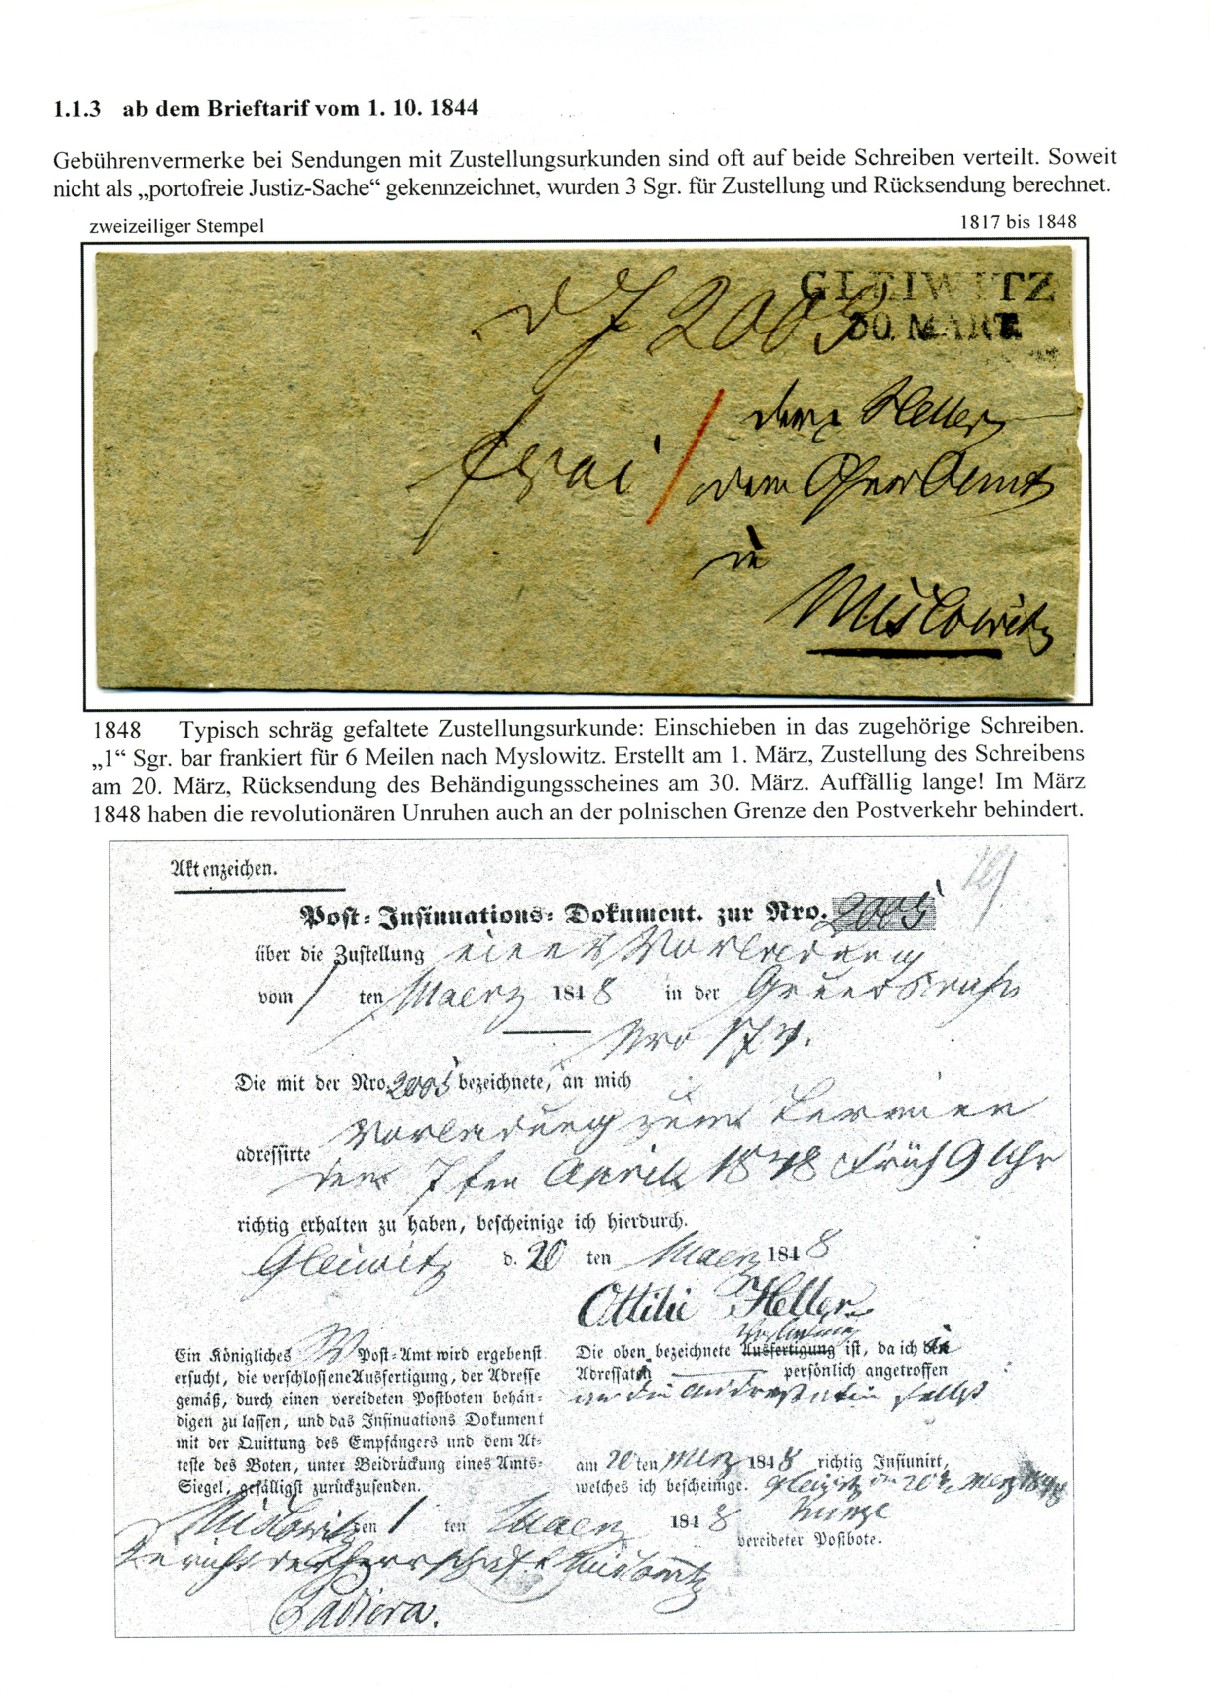 1.1.3 ab dem Brieftarif vom 1. 10. 1844
Gebührenvermerke bei Sendungen mit Zustellungsurkunden sind oft auf beide Schreiben verteilt. Soweit
nicht als „portofreie Justiz-Sache“ gekennzeichnet, wurden 3 Sgr. für Zustellung und Rücksendung berechnet.
zweizeiliger Stempel 1817 bis 1848
GLEIWITZ
30. MÄRZ
2005
Heller
in
Mislowitz
1848 Typisch schräg gefaltete Zustellungsurkunde: Einschieben in das zugehörige Schreiben.
„1“ Sgr. bar frankiert für 6 Meilen nach Myslowitz. Erstellt am 1. März, Zustellung des Schreibens
am 20. März, Rücksendung des Behändigungsscheines am 30. März. Auffällig lange! Im März
1848 haben die revolutionären Unruhen auch an der polnischen Grenze den Postverkehr behindert.
Aktenzeichen.
Post-Insinuations-Dokument. zur Nro. 2005
über die Zustellung einer Vorladung
vom 1 ten Maerz 1848 in der
Nro
Die mit der Nro. 2005 bezeichnete, an mich
Vorladung zum Termin
adressirte
den 7ten April 1848 Früh 9 Uhr
richtig erhalten zu haben, bescheinige ich hierdurch.
Gleiwitz d. 20 ten Maerz 1848
Ottilie Heller
Ein Königliches Post-Amt wird ergebenst
ersucht, die verschlossene Ausfertigung, der Adresse
gemäß, durch einen vereideten Postboten behän-
digen zu lassen, und das Insinuations Dokument
mit der Quittung des Empfängers und dem At-
teste des Boten, unter Beidrückung eines Amts-
Siegel, gefälligst zurückzusenden.
Vorladung
Die oben bezeichnete Ausfertigung ist, da ich die
Adressatin persönlich angetroffen
an die Adressatin selbst
am 20 ten Merz 1848 richtig Insinuirt,
welches ich bescheinige. Gleiwitz den 20t Merz 1848
Kunze
vereideter Postbote.
Mislowitz den 1 ten Maerz 1848
Gericht der Herrschaft Mislowitz